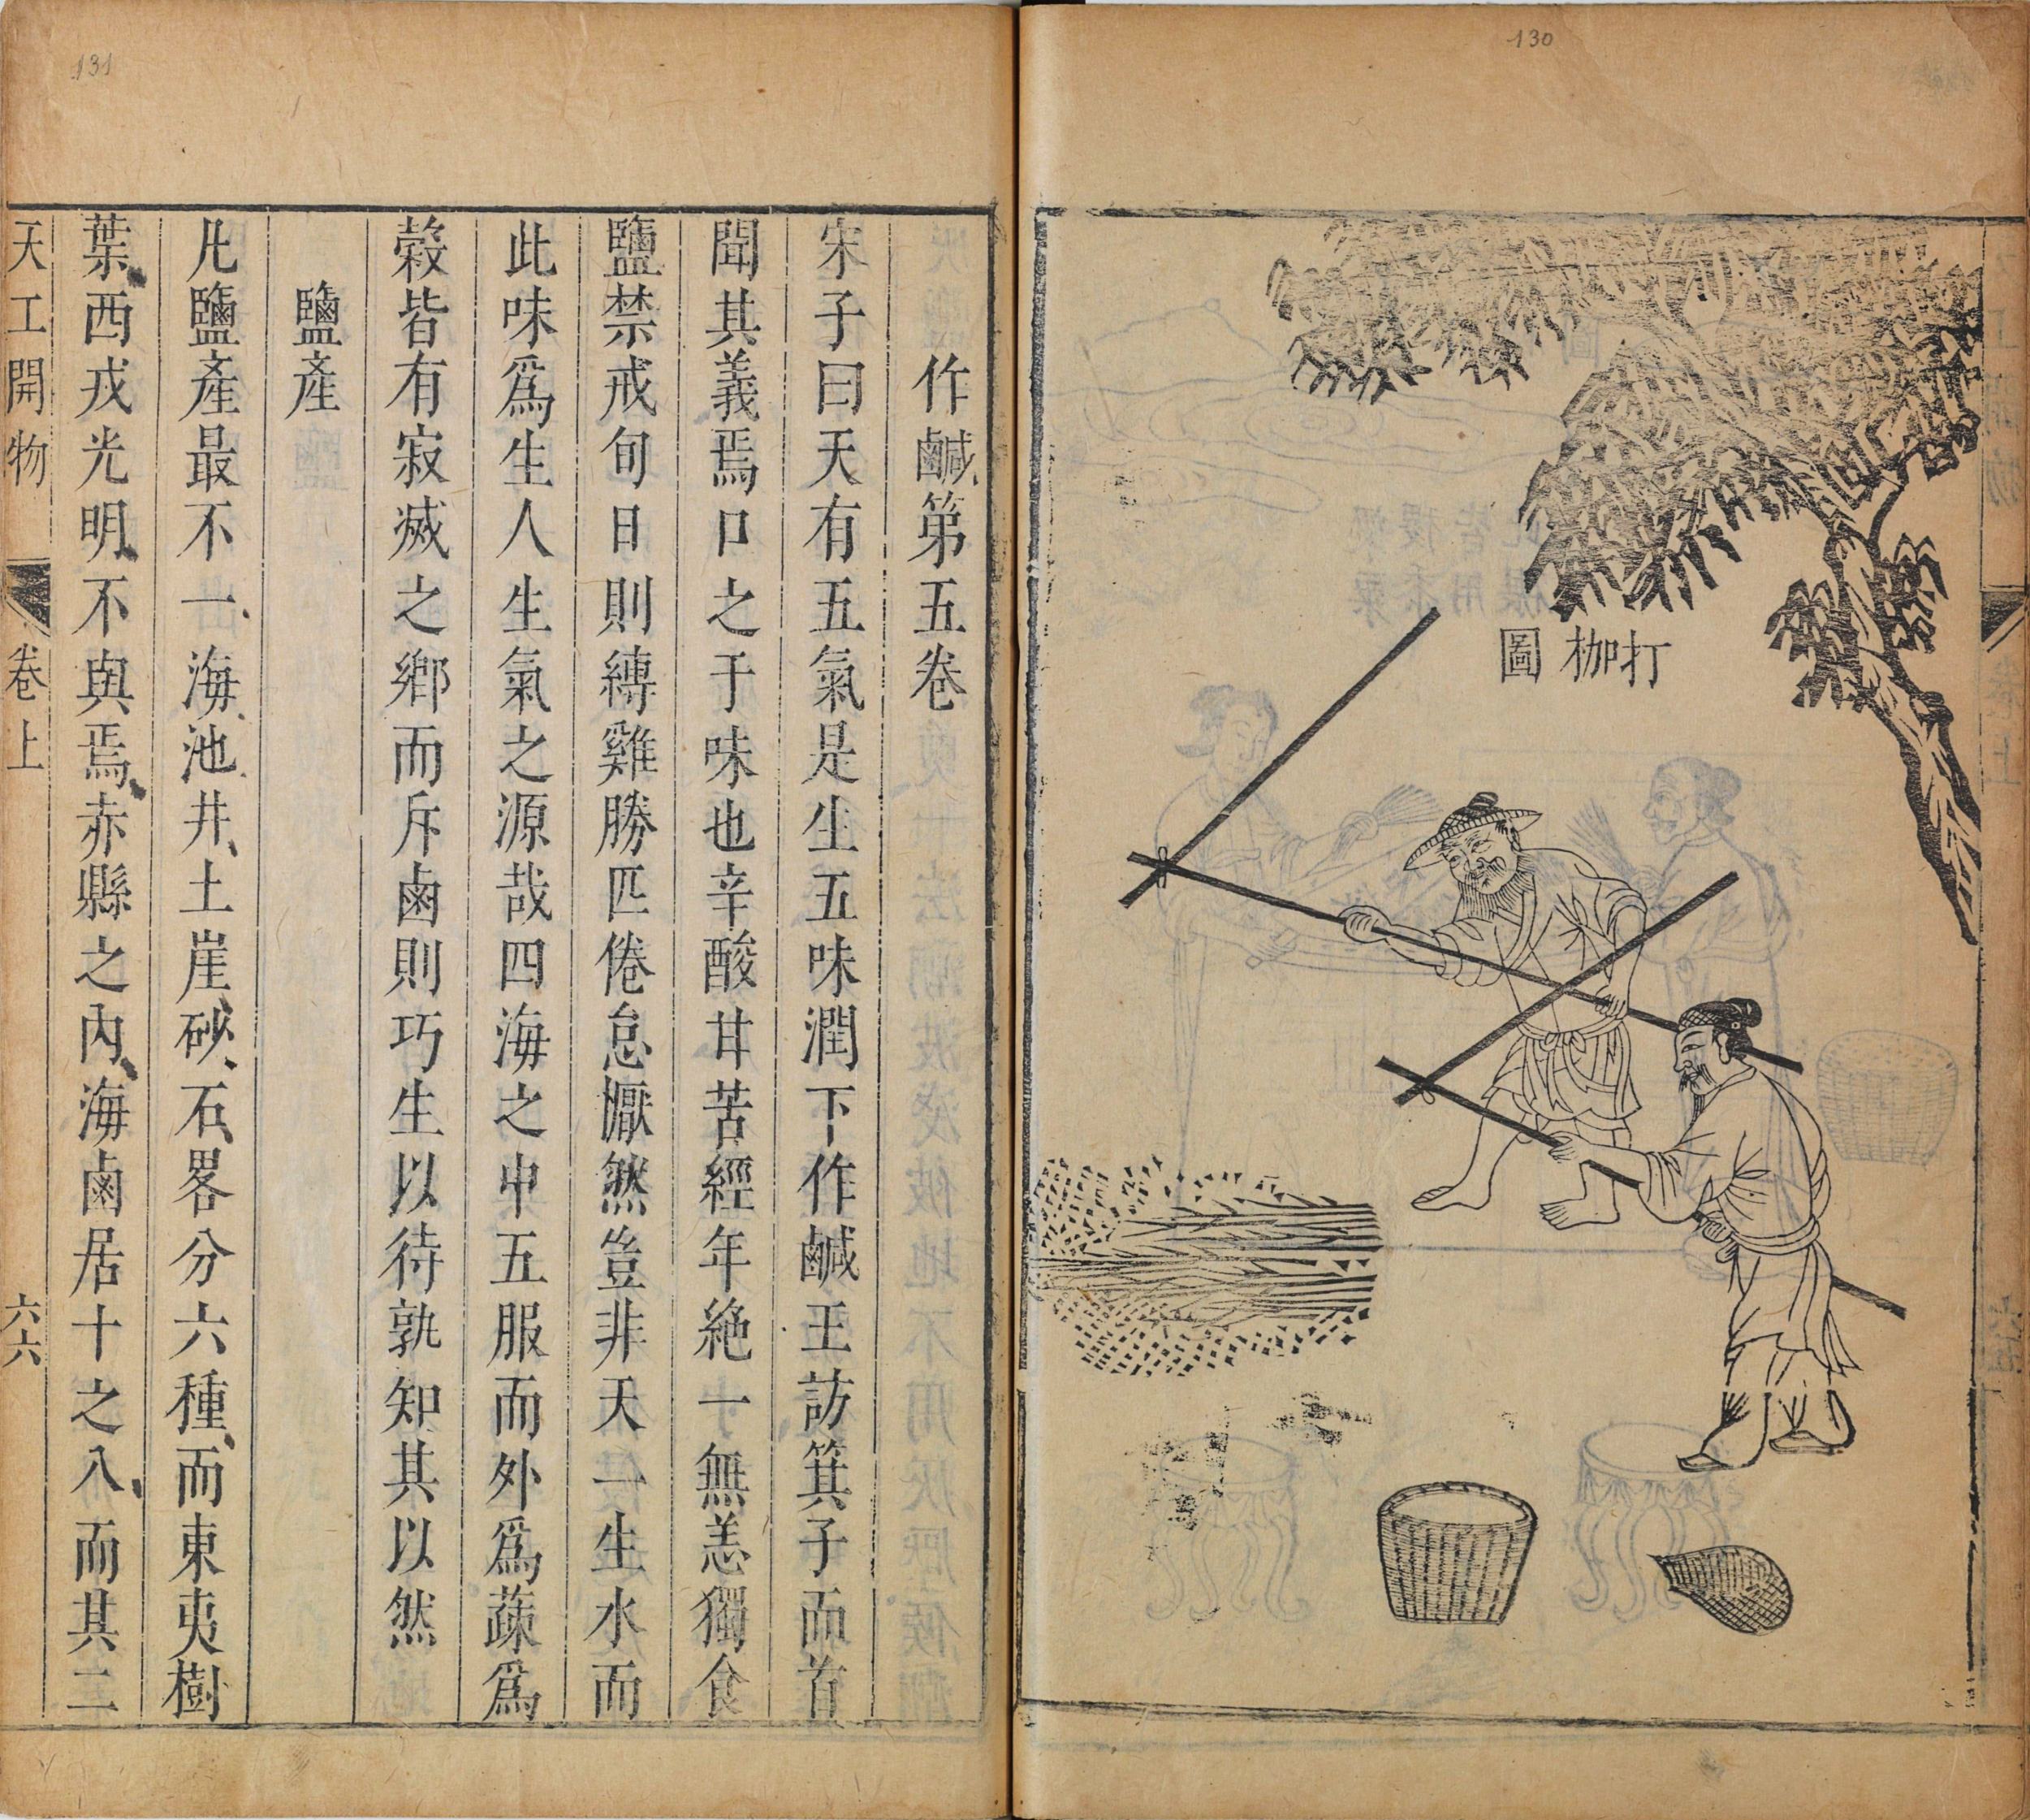 130
打枷圖
131
作鹹第五卷
宋子曰天有五氣是生五味潤下作鹹王訪箕子而首
聞其義焉口之于味也辛酸甘苦經年絶一無恙獨食
鹽禁戒旬日則縛雞勝匹倦怠懨然豈非天一生水而
此味爲生人生氣之源哉四海之中五服而外爲蔬爲
穀皆有寂滅之鄉而斥鹵則巧生以待孰知其以然
鹽產
凡鹽產最不一海、池、井、土、崖、砂、石、畧分六種、而東夷樹
葉、西戎光明、不與焉、赤縣之內、海鹵居十之八、而其二
天工開物
卷上
六六